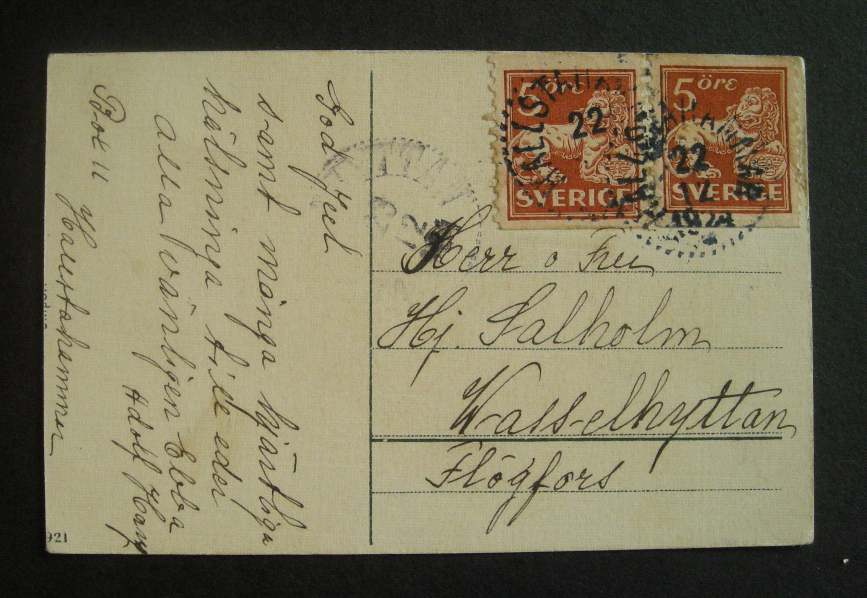 God Jul
samt många hjärtliga
hälsninga till eder
alla vänligen Ebba
Adolf
Box 11 Hallstahammar
5 öre
SVERIGE
5 öre
SVERIGE
HALLSTAHAMMAR
22
12
1924
Herr o Fru
Hj. Salholm
Wasselhyttan
Flögfors
921